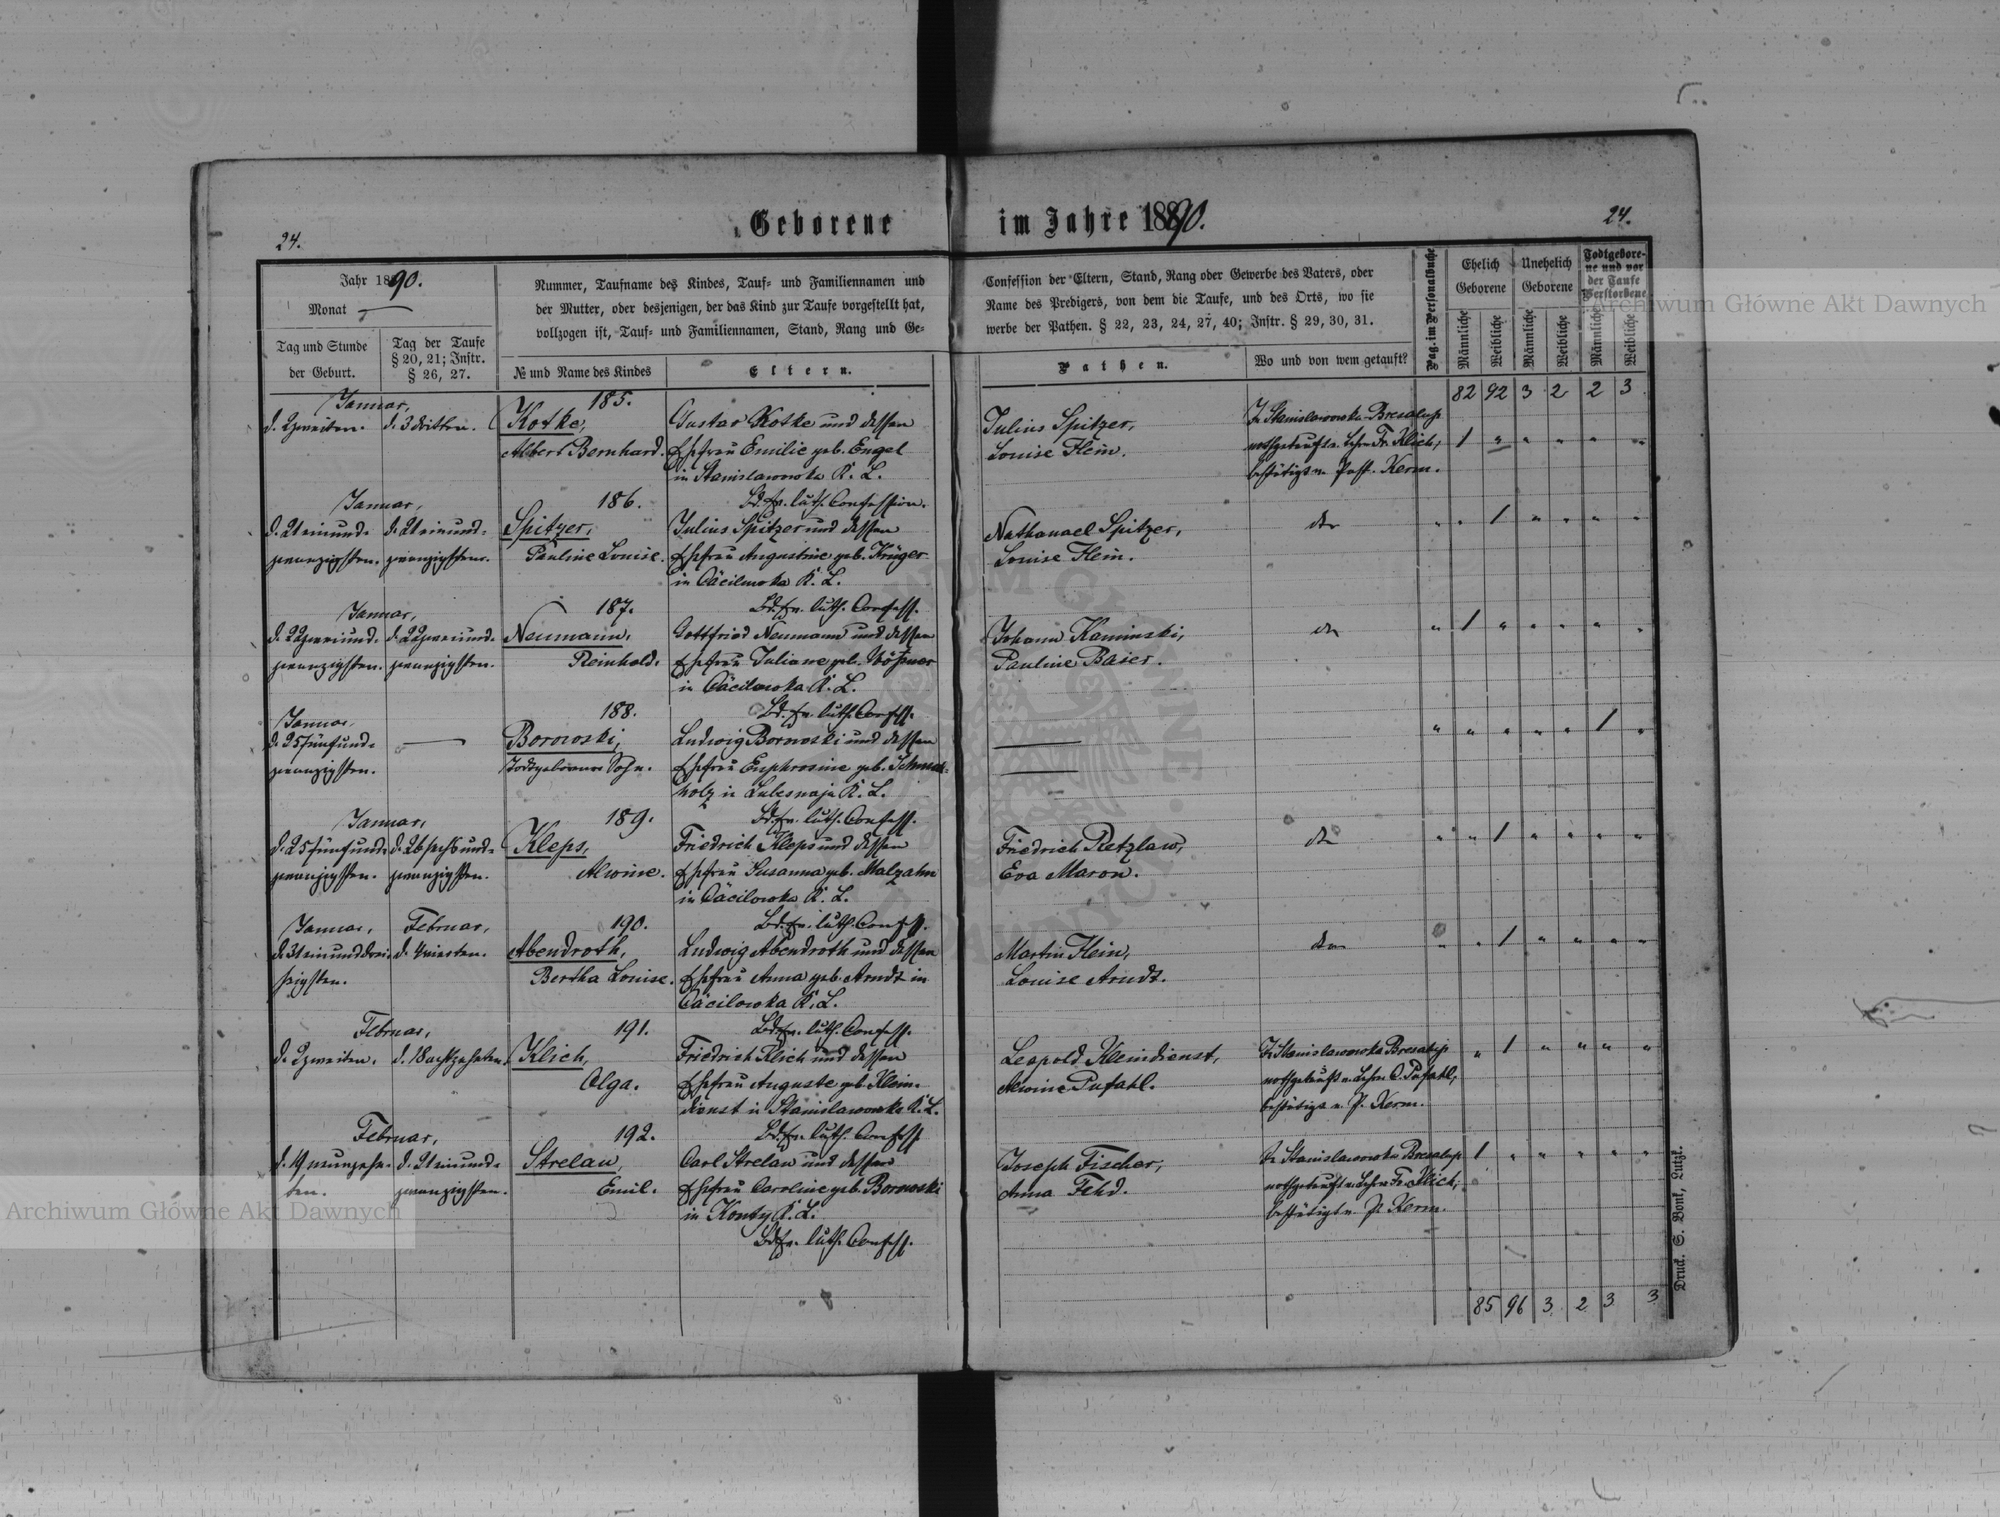 Geborene im Jahre 1890.
24.
24.
Jahr 1890.
Monat
Tag und Stunde
der Geburt.
Tag der Taufe
§ 20, 21; Instr.
§ 26, 27.
Nummer, Taufname des Kindes, Tauf- und Familiennamen und
der Mutter, oder desjenigen, der das Kind zur Taufe vorgestellt hat,
vollzogen ist, Tauf- und Familiennamen, Stand, Rang und Ge-
№ und Name des Kindes
Eltern.
Confession der Eltern, Stand, Rang oder Gewerbe des Vaters, oder
Name des Predigers, von dem die Taufe, und des Orts, wo sie
werbe der Pathen. § 22, 23, 24, 27, 40; Instr. § 29, 30, 31.
Pathen.
Wo und von wem getauft?
Pag. im Personalbuche
Ehelich
Geborene
Unehelich
Geborene
Todtgebore-
ne und vor
der Taufe
Verstorbene
Männliche
Weibliche
Männliche
Weibliche
Männliche
Weibliche
82 92 3 2 2 3
Januar,
d. 2 zweiten. d. 3 dritten.
185.
Kotke,
Albert Bernhard.
Gustav Kotke und dessen
Ehefrau Emilie geb. Engel
in Stanislawowka K. L.
Bd. ev. luth. Confession.
Julius Spitzer,
Louise Klein.
In Stanislawowka-Bresalup
nothgetauft v. Lehrer Fr. Klich,
bestätigt v. Past. Kerm.
1
Januar,
d. 21 einund-
zwanzigsten.
d. 21 einund-
zwanzigsten.
186.
Spitzer,
Pauline Louise.
Julius Spitzer und dessen
Ehefrau Augustine geb. Krüger
in Cäcilowka K. L.
Bd. ev. luth. Confess.
Nathanael Spitzer,
Louise Klein.
dto
1
Januar,
d. 22 zweiund-
zwanzigsten.
d. 22 zweiund-
zwanzigsten.
187.
Neumann,
Reinhold.
Gottfried Neumann und dessen
Ehefrau Juliane geb.
in Cäcilowka K. L.
Bd. ev. luth. Confess.
Johann Kaminski,
Pauline Baier.
dto
1
Januar,
d. 25 fünfund-
zwanzigsten.
188.
Borowski,
Todtgeborener Sohn.
Ludwig Borowski und dessen
Ehefrau Euphrosine geb. Schmal-
holz in Lulesnaja K. L.
Bd. ev. luth. Confess.
1
Januar,
d. 25 fünfund-
zwanzigsten.
d. 26 sechsund-
zwanzigsten.
189.
Kleps,
Alwine.
Friedrich Kleps und dessen
Ehefrau Susanna geb. Malzahn
in Cäcilowka K. L.
Bd. ev. luth. Confess.
Friedrich Retzlaw,
Eva Maron.
dto
1
Januar,
Februar,
d. 31 einunddrei-
ßigsten.
d. 4 vierten.
190.
Abendroth,
Bertha Louise.
Ludwig Abendroth und dessen
Ehefrau Anna geb. Arndt in
Cäcilowka K. L.
Bd. ev. luth. Confess.
Martin Klein,
Louise Arndt.
dto
1
Februar,
d. 2 zweiten. d. 18 achtzehnten.
191.
Klich,
Olga.
Friedrich Klich und dessen
Ehefrau Auguste geb. Klein-
dienst in Stanislawowka K. L.
Bd. ev. luth. Confess.
Leopold Kleindienst,
Alwine Pufahl.
In Stanislawowka Bresalup
nothgetauft v. Lehrer O. Pufahl,
bestätigt v. P. Kerm.
1
Februar,
d. 19 neunzehn-
ten.
d. 21 einund-
zwanzigsten.
192.
Strelau,
Emil.
Carl Strelau und dessen
Ehefrau Caroline geb. Borowski
in Konty K. L.
Bd. ev. luth. Confess.
Joseph Fischer,
Anna Fehd.
In Stanislawowka Bresalup
nothgetauft v. Lehrer Fr. Klich,
bestätigt v. P. Kerm.
1
85 96 3 2 3 3
Druck. S. Bonk, Lutzk.
Archiwum Główne Akt Dawnych
Archiwum Główne Akt Dawnych